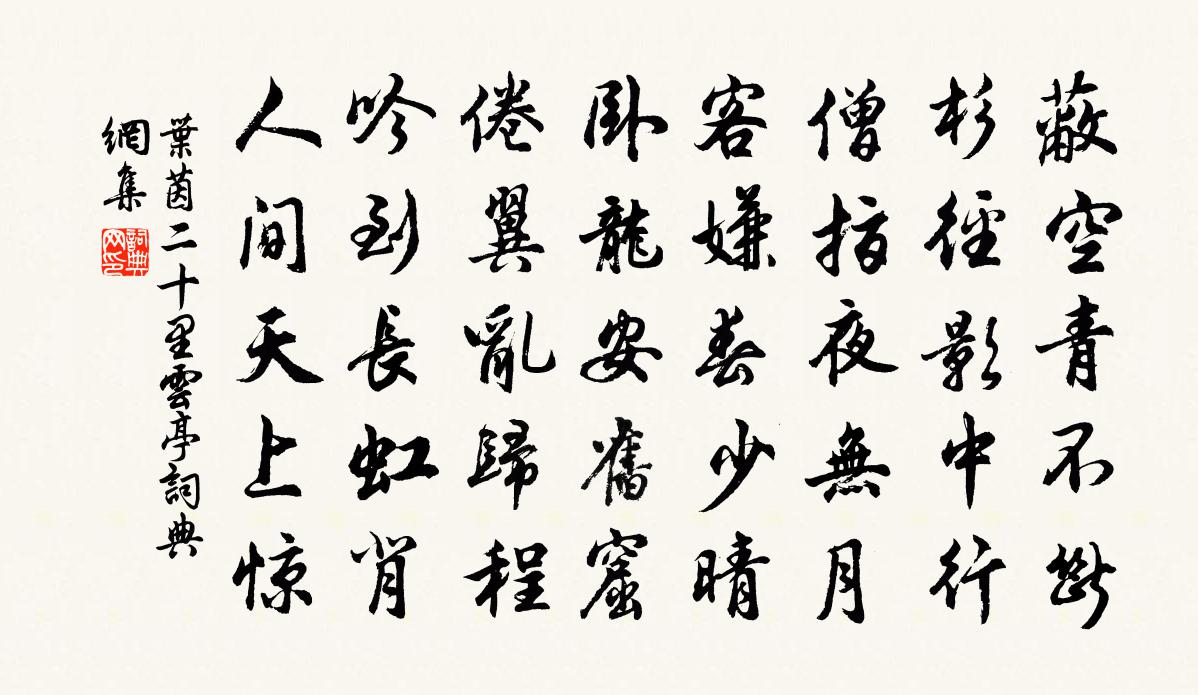 蔽空青不斷
杉徑影中行
僧指夜無月
客嫌春少晴
臥龍安舊窟
倦翼亂歸程
吟到長虹背
人间天上惊
葉茵二十里雲亭詞典
網集
詞典
网印